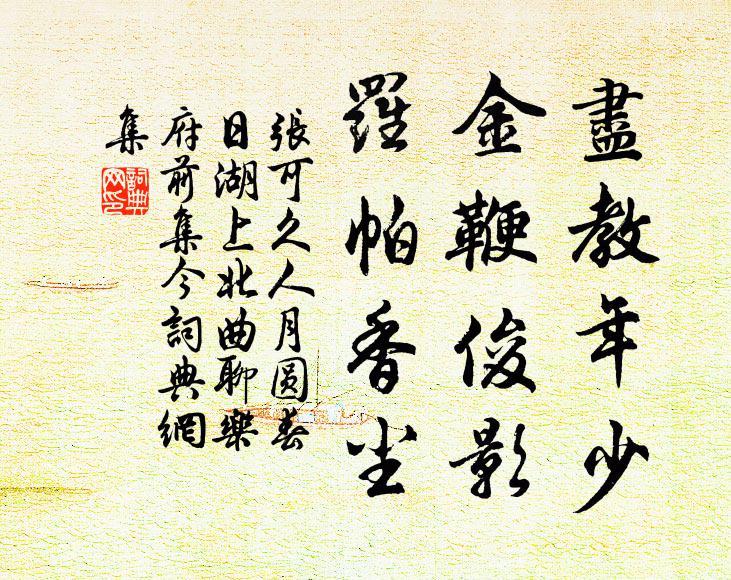 盡教年少
金鞭俊影
羅帕香尘
張可久人月圆春
日湖上北曲聊樂
府前集今詞典網
集
詞典
网印